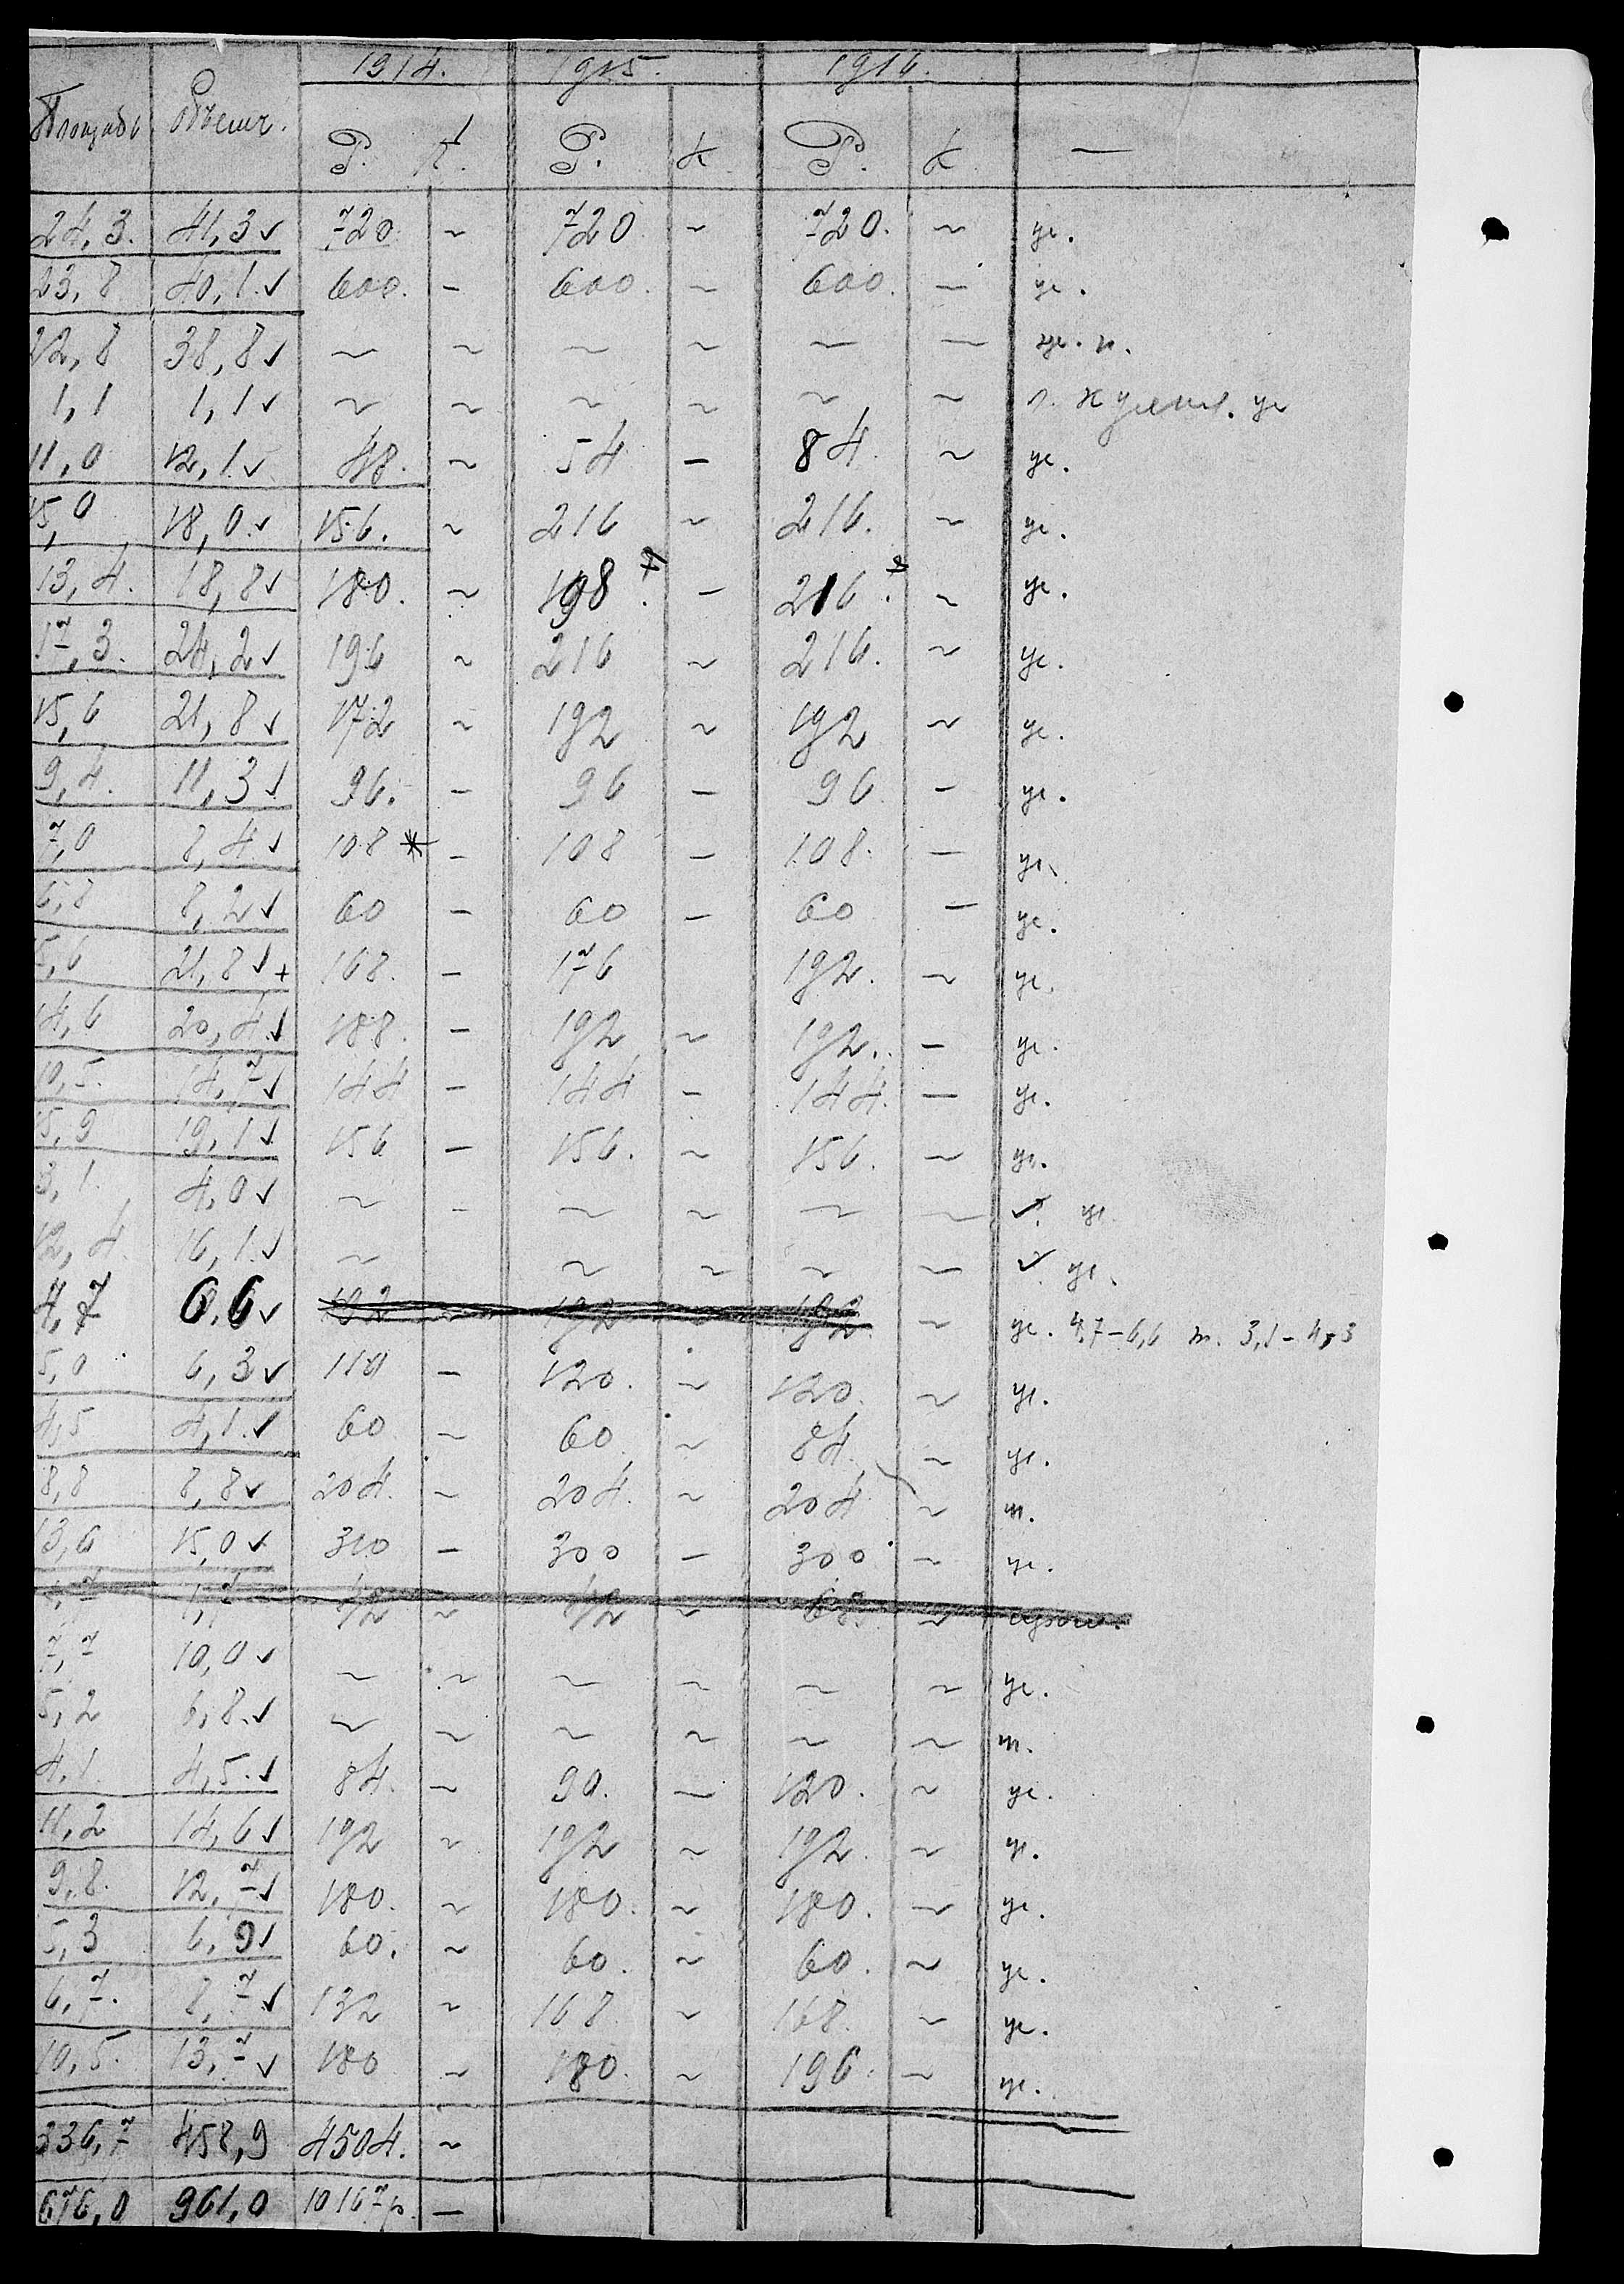 1914. 1915. 1916.
Площадь Объемъ. Р. К. Р. К Р. К —
24,3. 41,3 ✓ 720. ~ 720 ~ 720. ~ уг.
23,8 40,1. ✓ 600. - 600. ~ 600. — уг.
22,8 38,8 ✓ ~ ~ ~ ~ ~ — уг. п.
1,1 1,1 ✓ ~ ~ ~ ~ ~ ~ уг
11,0 12,1. ✓ 48. ~ 54 - 84. ~ уг.
15,0 18,0. ✓ 156. ~ 216 ~ 216. ~ уг.
13,4. 18,8 ✓ 180. ~ 198. - 216. ~ уг.
17,3. 24,2 ✓ 196 ~ 216 ~ 216. ~ уг.
15,6 21,8 ✓ 172 ~ 192 ~ 192 ~ уг.
9,4. 11,3 ✓ 96. - 96 - 96 - уг.
7,0 8,4 ✓ 108 * - 108 - 108. — уг.
6,8 8,2 ✓ 60 - 60 - 60 — уг.
5,6 21,8 ✓ + 168. - 176 192. ~ уг.
14,6 20,4. ✓ 188. - 192 ~ 192. - уг.
10,5. 14,7 ✓ 144 - 144 - 144. — уг.
15,9 19,1 ✓ 156 - 156. ~ 156. ~ уг.
3,1. 4,0 ✓ ~ - ~ ~ ~ — ✓. уг.
12,4. 16,1. ✓ ~ ~ ~ ~ — ✓. уг.
4,7 6,6 ✓ 192 ~ 192 ~ 192 ~ уг. 4,7-6,6 т. 3,1-4,3
5,0 6,3 ✓ 110 - 120. ~ 120 ~ уг.
4,5 4,1. ✓ 60 ~ 60 ~ 84. ~ уг.
8,8 8,8 ✓ 204. ~ 204. ~ 204 ~ т.
13,6 15,0 ✓ 300 - 300 - 300 ~ уг.
1,7 1,7 42 ~ 42 ~ 68. ~
7,7 10,0 ✓ ~ ~ ~ ~ ~ ~ уг.
5,2 6,8. ✓ ~ ~ ~ ~ ~ ~ т.
4,1. 4,5. ✓ 84. ~ 90. — 120. ~ уг.
11,2 14,6 ✓ 192 ~ 192 ~ 192. ~ уг.
9,8. 12,7 ✓ 180. ~ 180. ~ 180. ~ уг.
5,3 6,9 ✓ 60. ~ 60. ~ 60. ~ уг.
6,7. 8,7 ✓ 132 ~ 168 ~ 168. ~ уг.
10,5. 13,7 ✓ 180 ~ 180. ~ 196. ~ уг.
336,7 458,9 4504. ~
676,0 961,0 10167 р. —